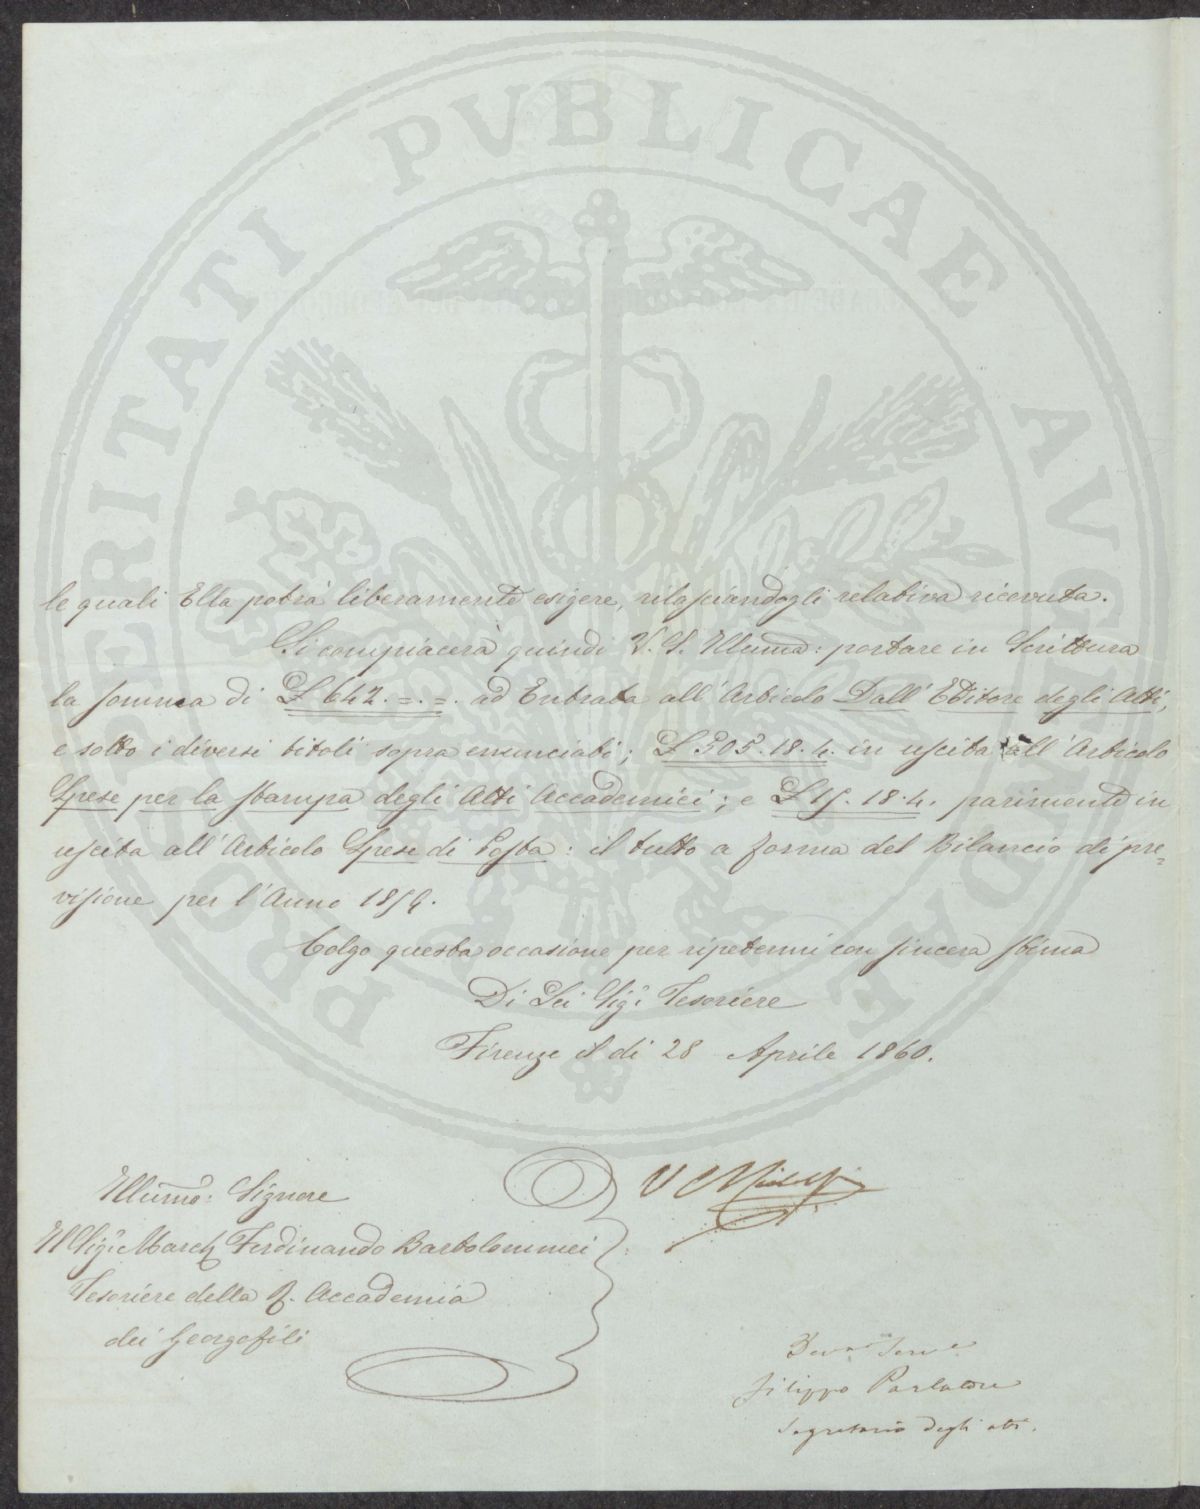 PROSPERITATI PVBLICAE AVGENDAE
le quali Ella potrà liberamente esigere, rilasciandogli relativa ricevuta.
Si compiacerà quindi V. S. Illuma: portare in Scrittura
la somma di £ 642. =. =. ad Entrata all'Articolo Dall'Editore degli Atti,
e sotto i diversi titoli sopra enunciati; £ 505. 18. 4. in uscita all'Articolo
Spese per la stampa degli Atti Accademici; e £ 15. 18. 4. parimente in
uscita all'Articolo Spese di Posta: il tutto a forma del Bilancio di pre=
visione per l'Anno 1859.
Colgo questa occasione per ripetermi con sincera stima
Di Lei Sigr. Tesoriere
Firenze il dì 28 Aprile 1860.
Illumo: Signore
Il Sigr. March. Ferdinando Bartolommei
Tesoriere della R. Accademia
dei Georgofili
Devmo Serve
Filippo Parlatore
Segretario degli atti.